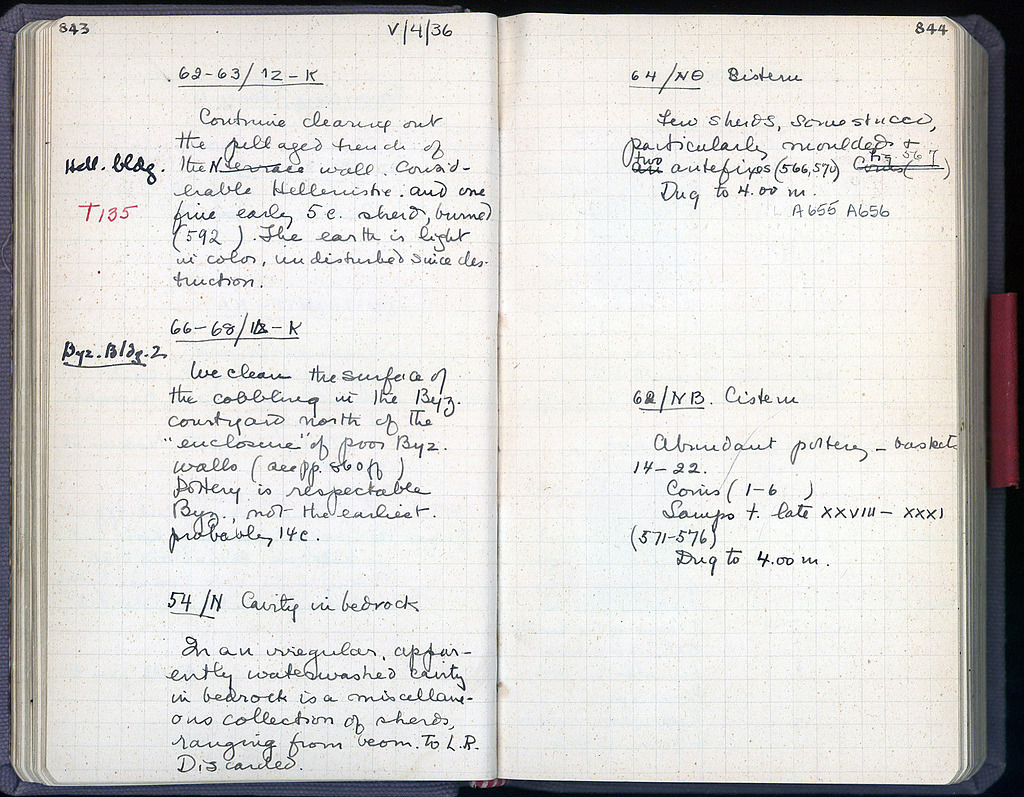 843
V/4/36
62-63/12-K
Continue clearing out
the pillaged trench of
Hell. bldg. the N terrace wall. Consid-
erable Hellenistic. and one
T135 fine early 5 c. sherd, burned
(592 ). The earth is light
in color, undisturbed since des-
truction.
66-68/ -K
Byz. Bldg. 2
We clean the surface of
the cobbling in the Byz.
courtyard north of the
"enclosure" of poor Byz.
walls (see pp. 860 ff )
Pottery is respectable
Byz., not the earliest.
probably 14 c.
54/N Cavity in bedrock
In an irregular, appar-
ently waterwashed cavity
in bedrock is a miscellane-
ous collection of sherds,
ranging from Geom. to L.R.
Discarded.
844
64/NΘ Cistern
Few sherds, some stucco,
particularly moulded, +
two an antefixes (566,570) Coins( )
Fig. 567
Dug to 4.00 m.
A655 A656
62/NB. Cistern
Abundant pottery - baskets
14-22.
Coins ( 1-6 )
Lamps +. late XXVIII - XXXI
(571-576)
Dug to 4.00 m.